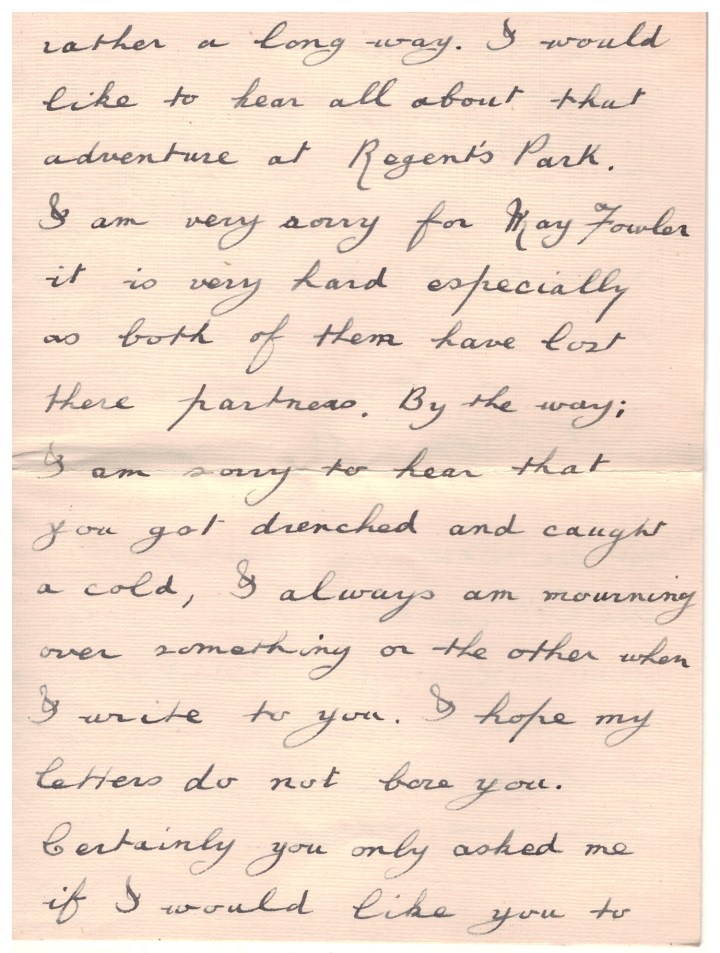 rather a long way. I would
like to hear all about that
adventure at Regent's Park.
I am very sorry for May Fowler
it is very hard especially
as both of them have lost
there partners. By the way;
I am sorry to hear that
you got drenched and caught
a cold, I always am mourning
over something or the other when
I write to you. I hope my
letters do not bore you.
Certainly you only asked me
if I would like you to